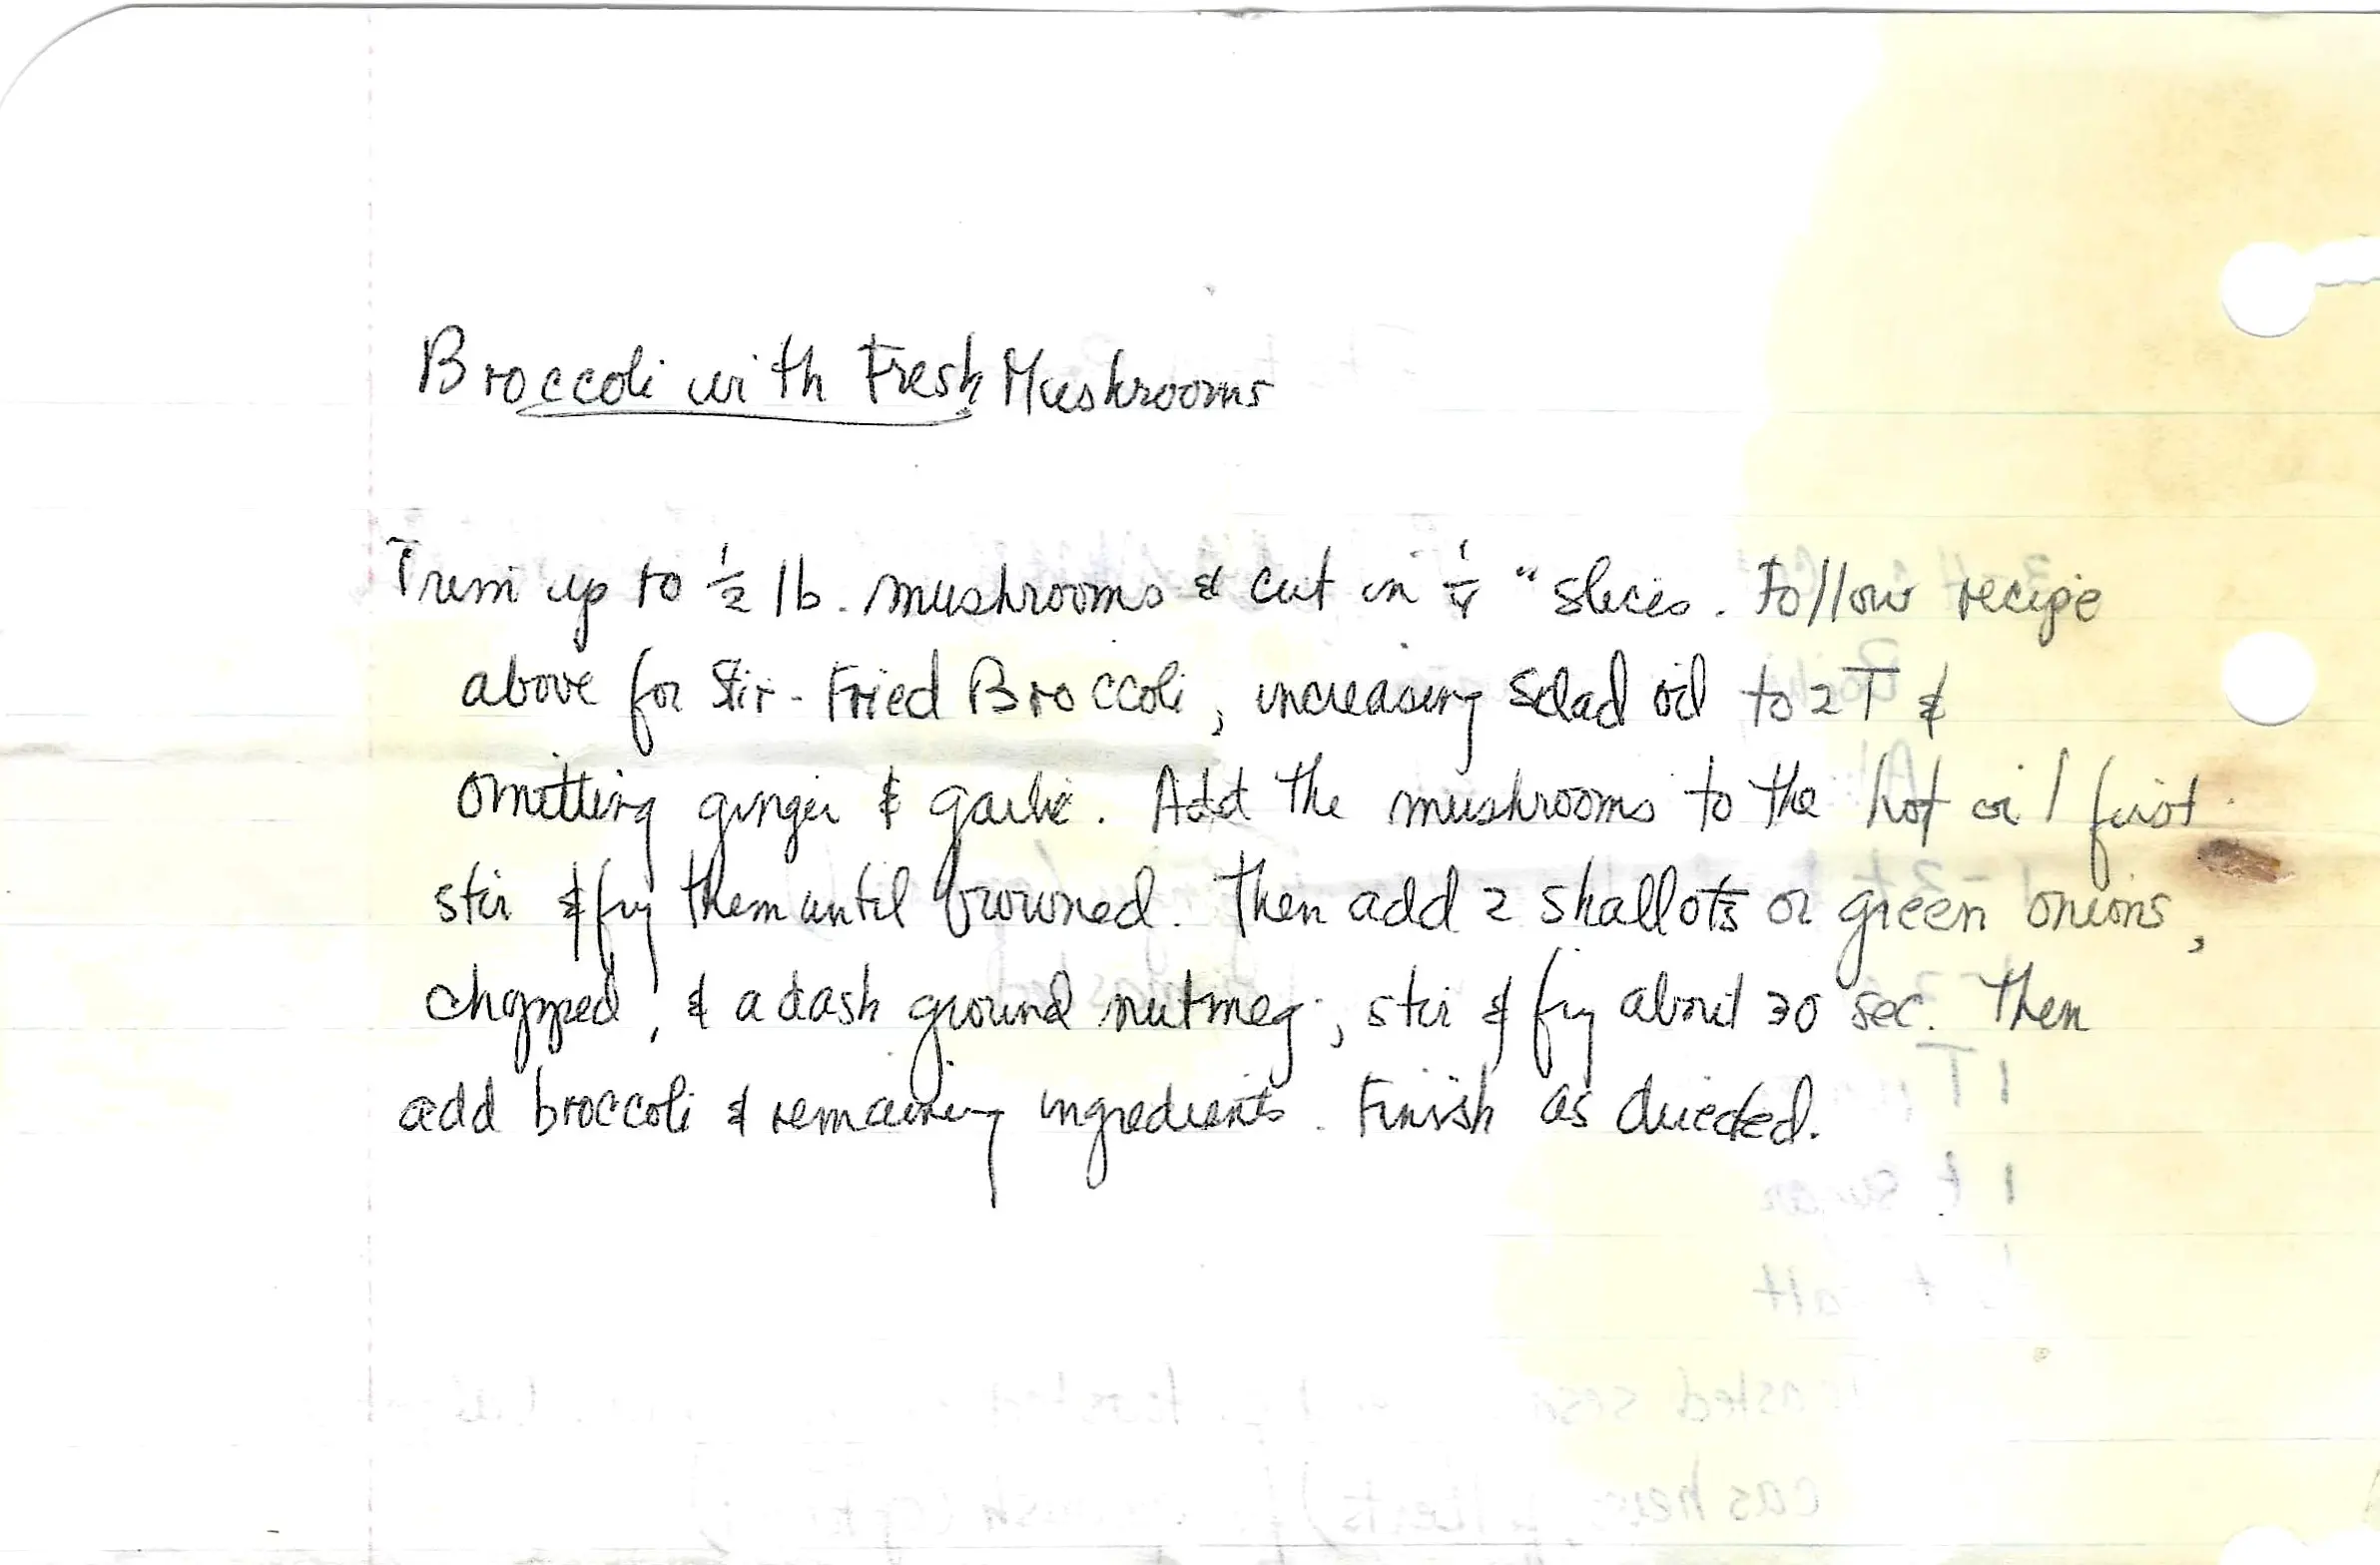 Broccoli with Fresh Mushrooms
Trim up to 1/2 lb. mushrooms & cut in 1/4 " slices. Follow recipe
above for Stir-Fried Broccoli, increasing salad oil to 2 T &
omitting ginger & garlic. Add the mushrooms to the hot oil first
stir & fry them until browned. Then add 2 shallots or green onions,
chopped, & a dash ground nutmeg; stir & fry about 30 sec. Then
add broccoli & remaining ingredients. Finish as directed.